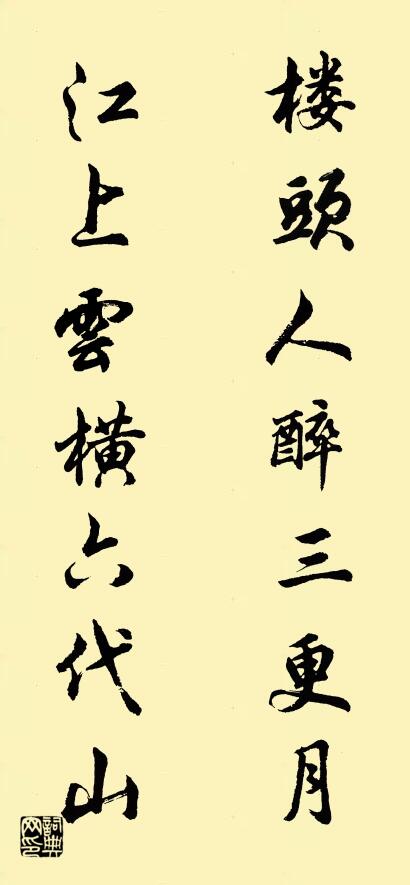 楼頭人醉三更月
江上雲橫六代山
詞典网印